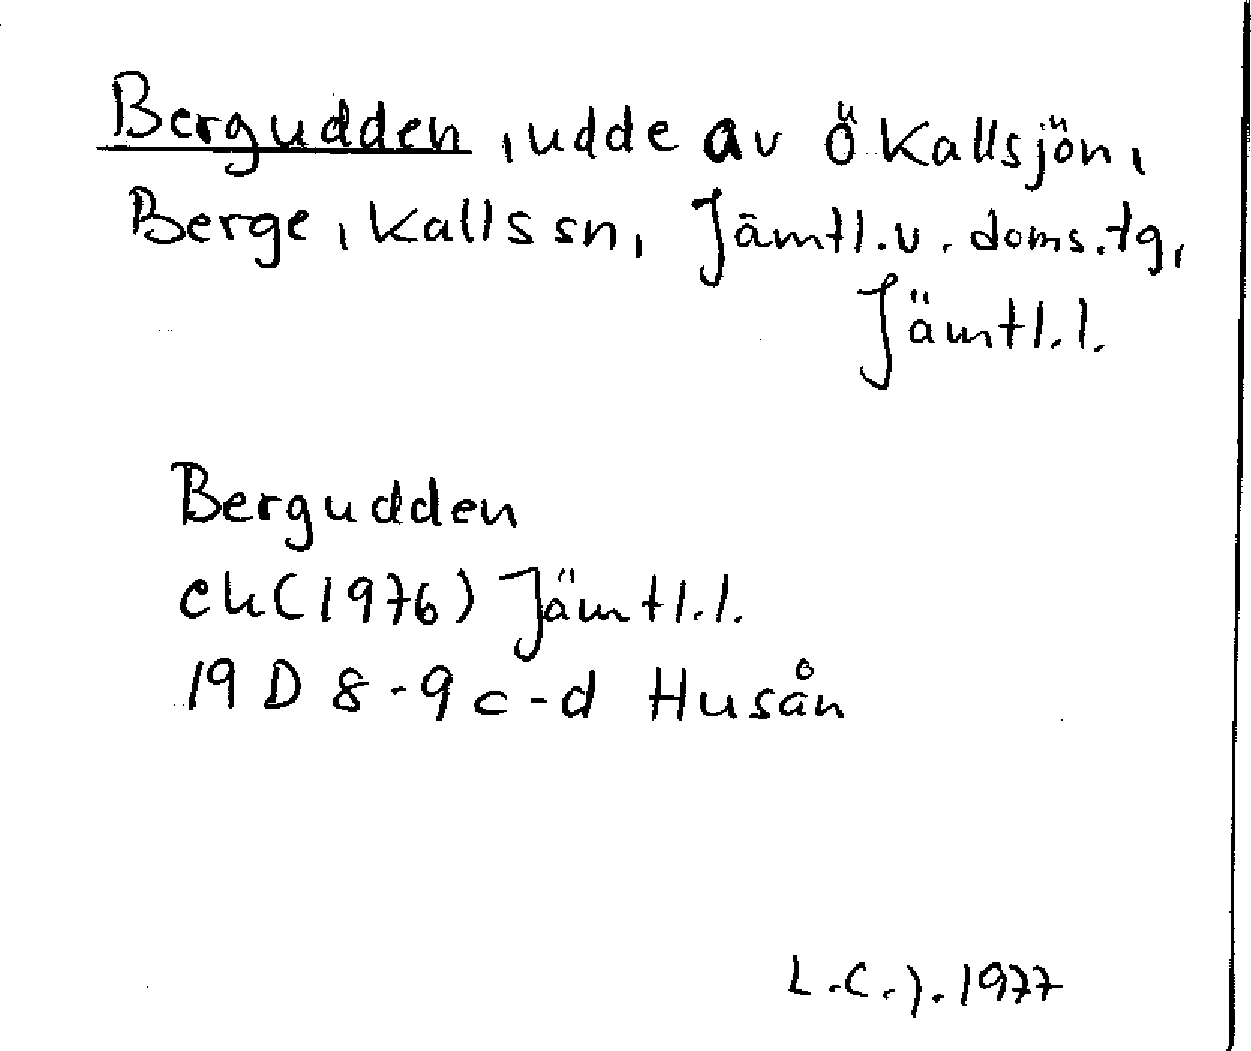 Bergudden, udde av Ö Kallsjön,
Berge, Kalls sn, Jämtl. v. doms. tg,
Jämtl. l.
Bergudden
ek (1976) Jämtl. l.
19 D 8-9 c-d Husån
L.C.J. 1977